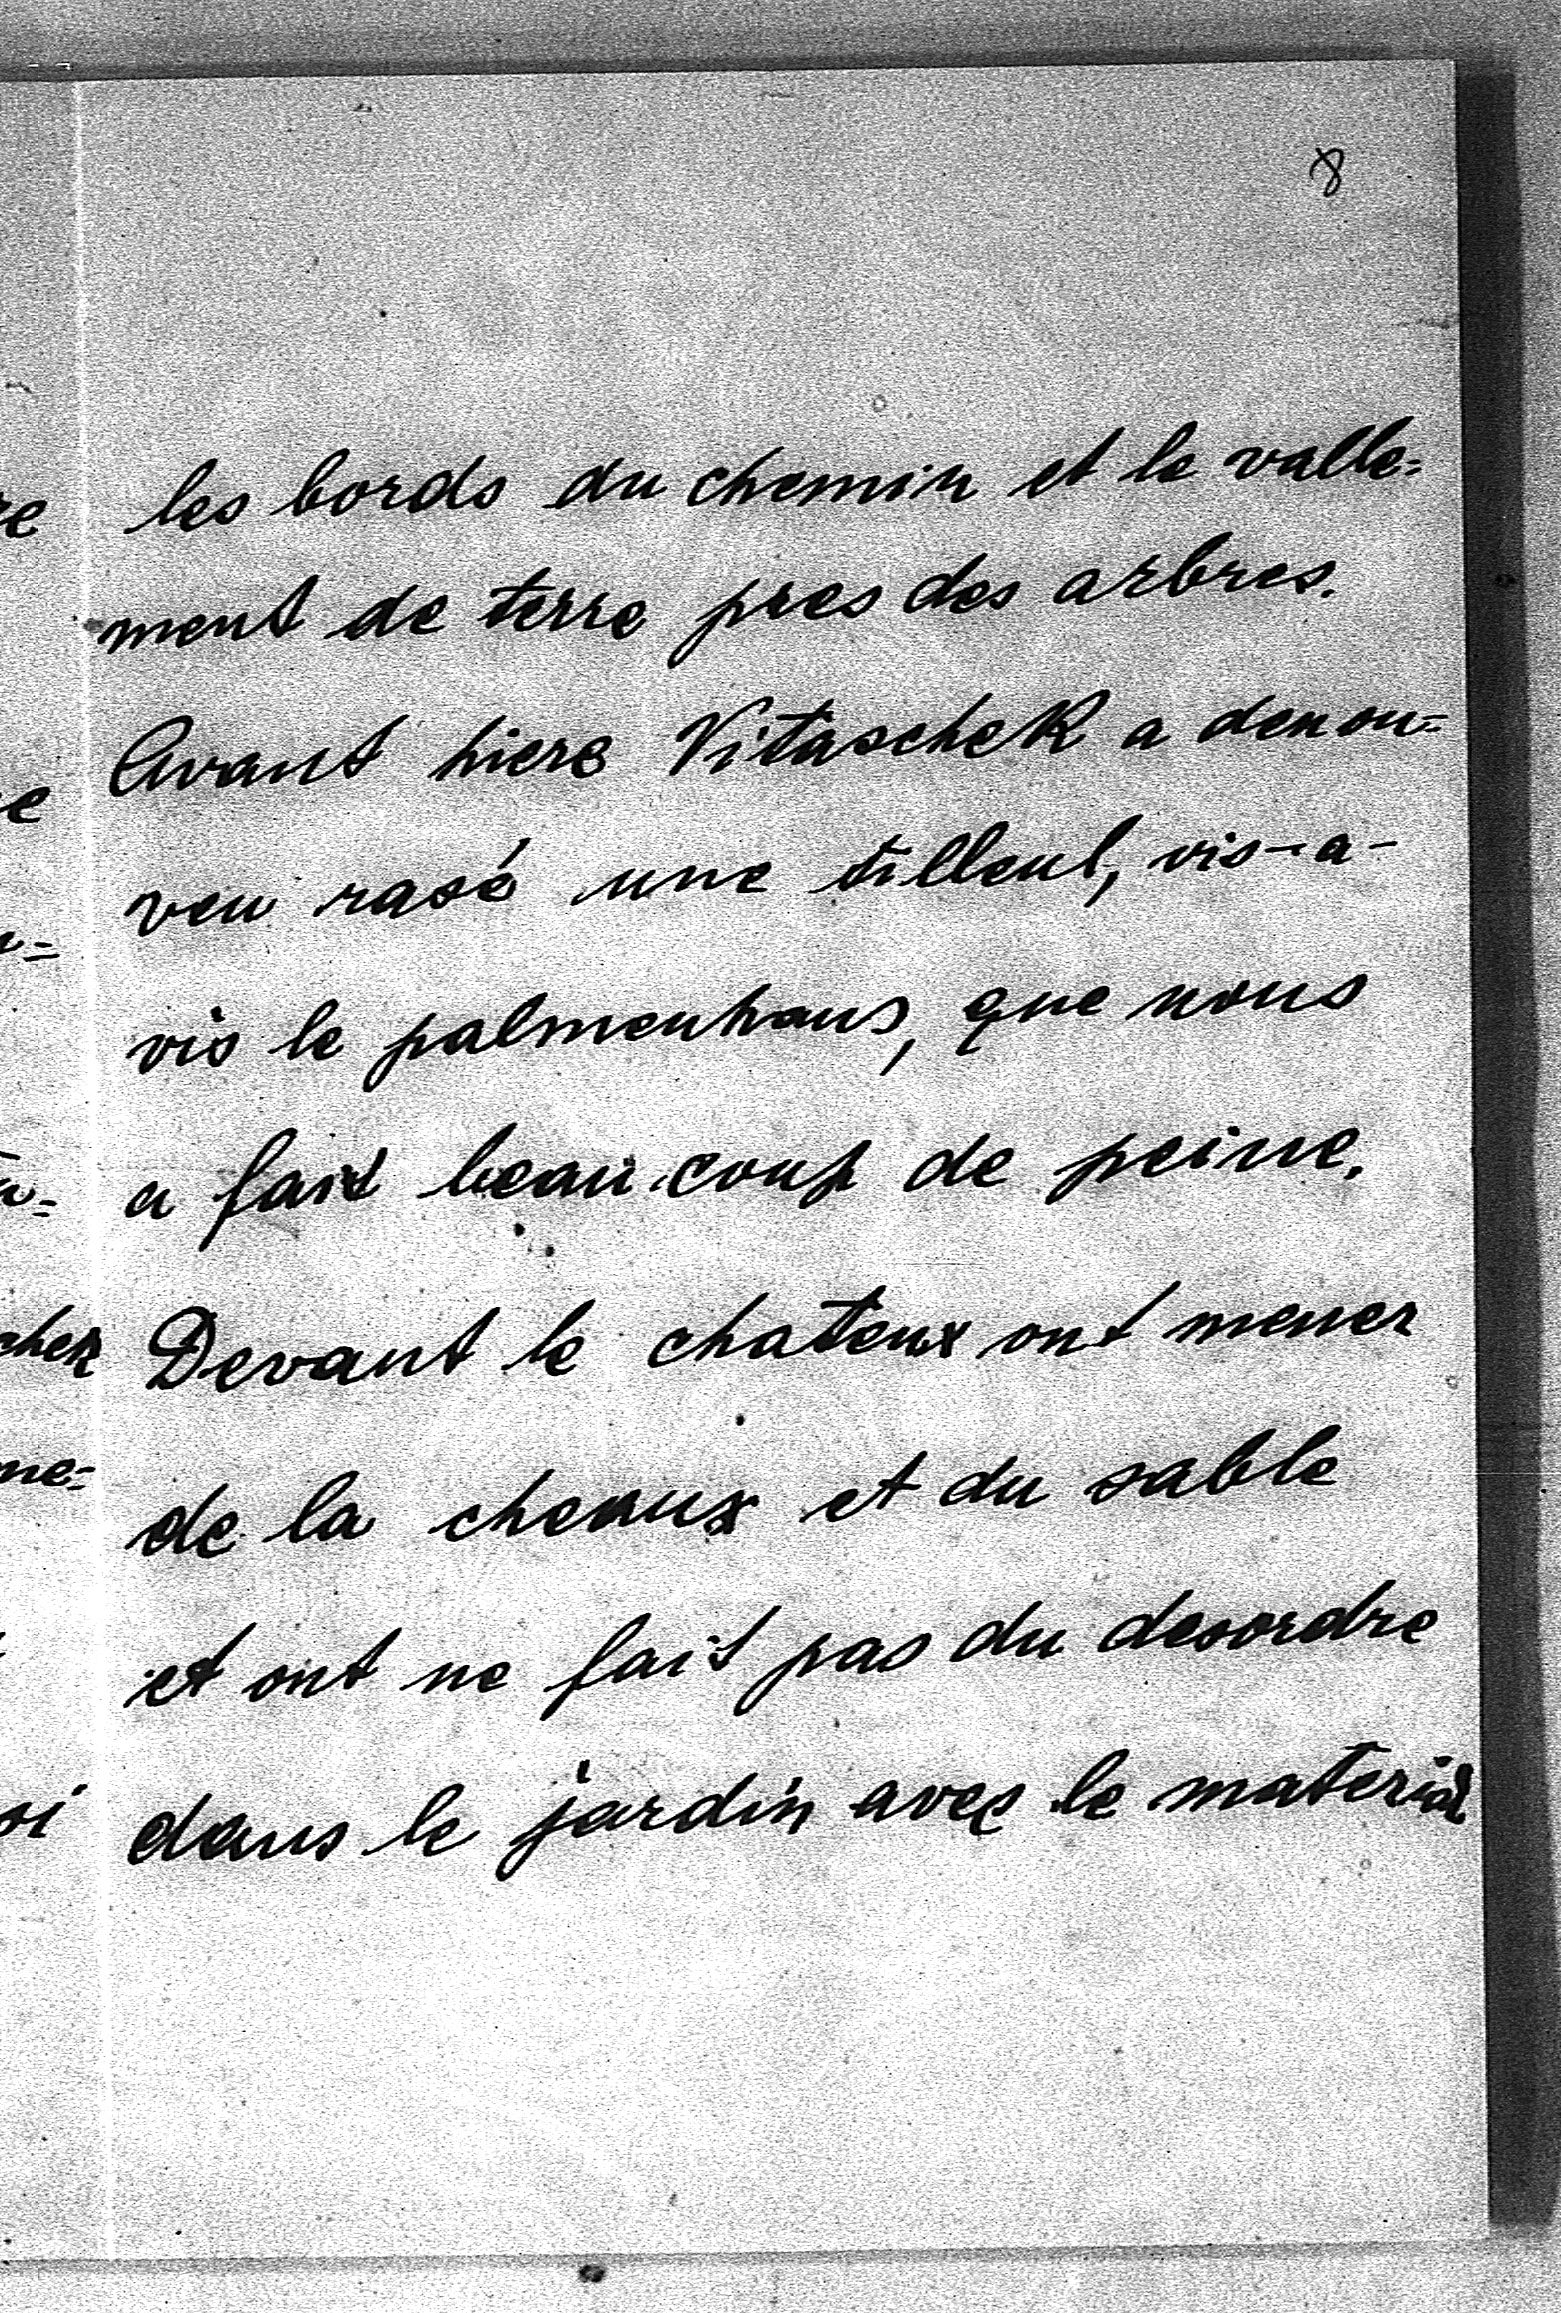 8
les bords du chemin et le valle=
ment de terre pres des arbres.
Avant hiere Vitaschek a denou=
veu rasé une tilleul, vis-a-
vis le palmenhaus, que nous
a fait beaucoup de peine.
Devant le chateux ont mener
de la cheaux et du sable
et ont ne fait pas du desordre
dans le jardin aveç le material